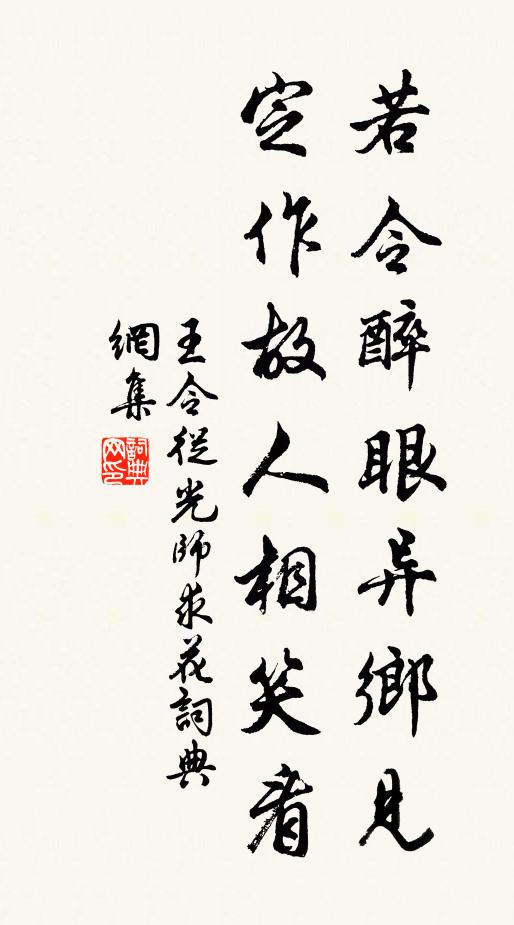 若令醉眼异鄉見
定作故人相笑看
王令從光師求花詞典
網集
詞典
网印